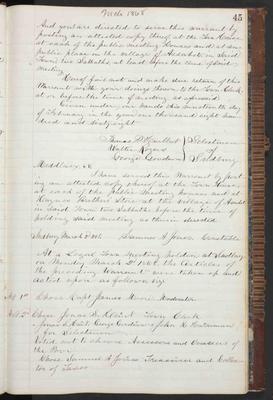 Mch 1868
45
And you are directed to serve this warrant by
posting an attested copy thereof at the Town House
at each of the public meeting Houses and at some
public place in the village of Assabet in said
Town, two Sabbaths at least before the time of said
meeting.
Hereof fail not and make due return of this
Warrant with your doings thereon to the Town Clerk
at or before the time of meeting as aforesaid
Given under our hands this day
of February in the year one thousand eight hun
dred and sixty eight
Thomas P. Hurlbut
Walter Rogers
George Goodnow
Selectmen
of
Sudbury
Middlesex, ss
I have served this Warrant by post
ing an attested copy thereof at the Town House
at each of the public Meeting houses and at
Brothers Store at the village of Assabet
in said Town two Sabbaths before the time of
holding said meeting as therein directed
Sudbury March 2d 1868
A Jones Constable
At a Legal Town Meeting holden at Sudbury
on Monday March 2d 1868 the Articles of
the preceding Warrant were taken up and
acted upon as follows viz
Art 1st Chose Capt James Moore Moderator
Art 2d Chose Jonas S. Hunt Town Clerk
George Goodnow & John H.
for Selectmen
Voted not to choose Assessors and Overseers of
the Poor
Chose Samuel A Jones Treasurer and Collec
tor of Taxes